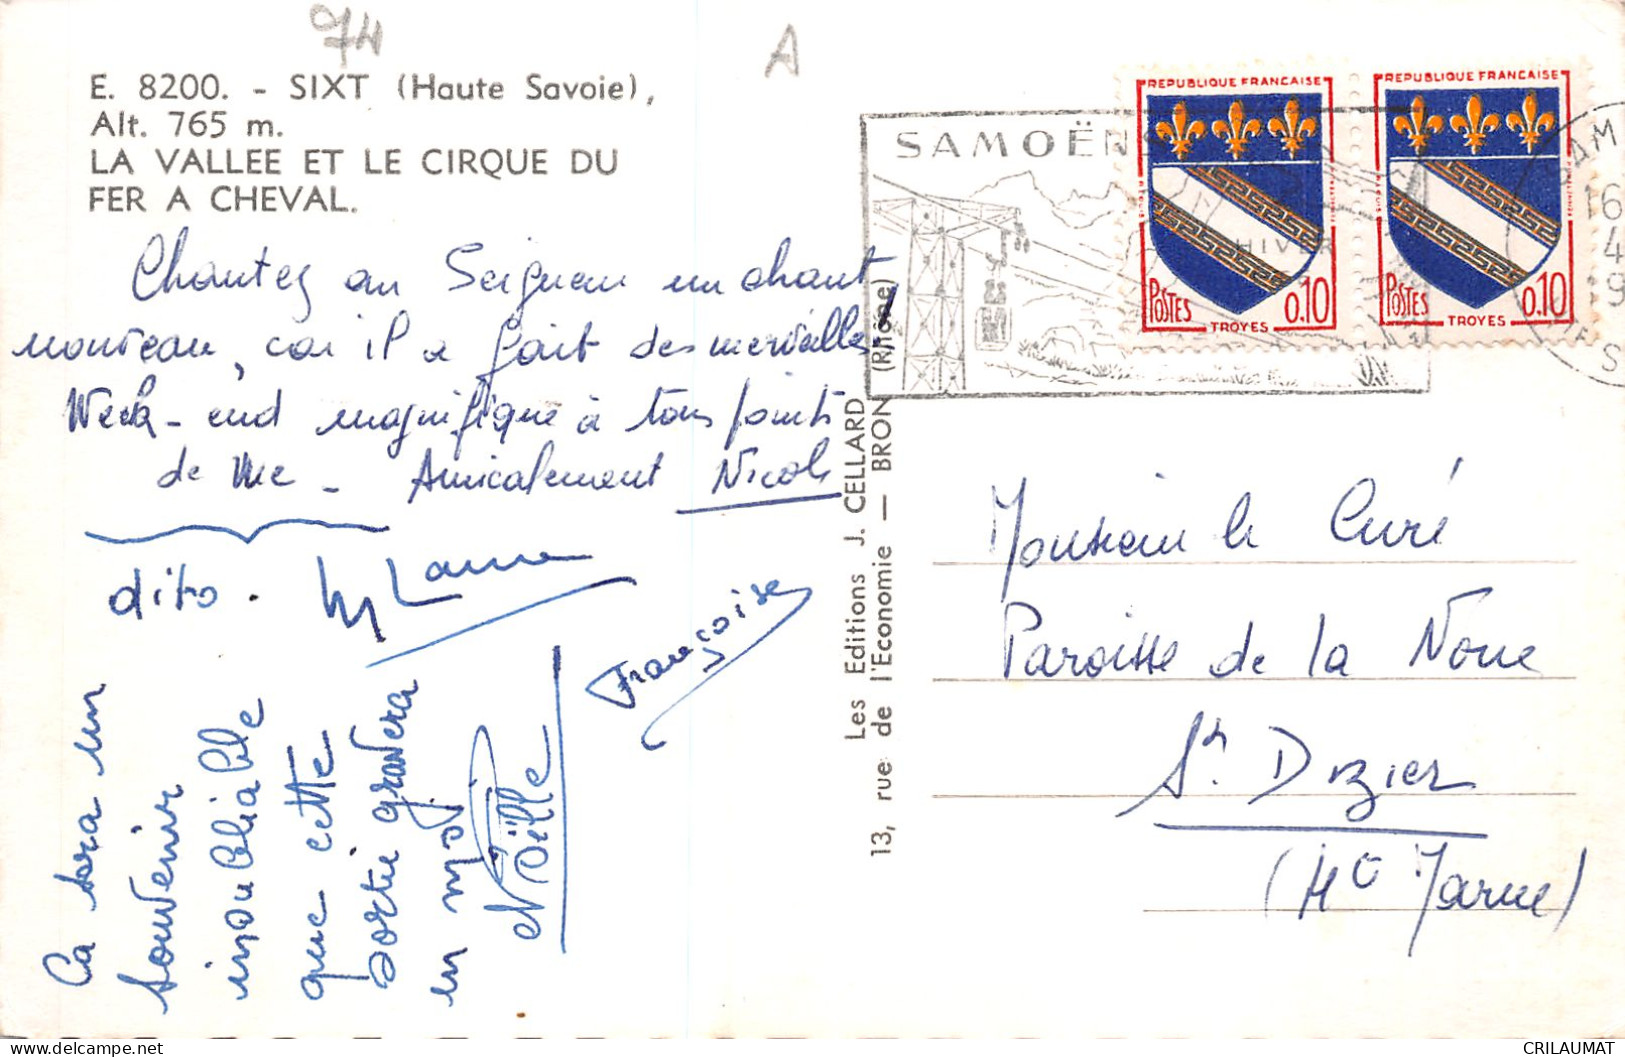 74
A
E. 8200. - SIXT (Haute Savoie),
Alt. 765 m.
LA VALLEE ET LE CIRQUE DU
FER A CHEVAL.
Chantez au Seigneur un chant
nouveau, car il a fait des merveilles,
Week-end magnifique à tous points
de vue - Amicalement Nicole
dito.
Françoise
Ca sera un
souvenir
inoubliable
que cette
sortie gravera
en moi.
Noëlle
Les Editions J. CELLARD
13, rue de l'Economie — BRON (Rhône)
SAMOËN
HIVER
REPUBLIQUE FRANCAISE
POSTES
0.10
TROYES
REPUBLIQUE FRANCAISE
POSTES
0.10
TROYES
16
4
9
Monsieur le Curé
Paroisse de la Noue
St. Dizier
(Hte Marne)
CRILAUMAT